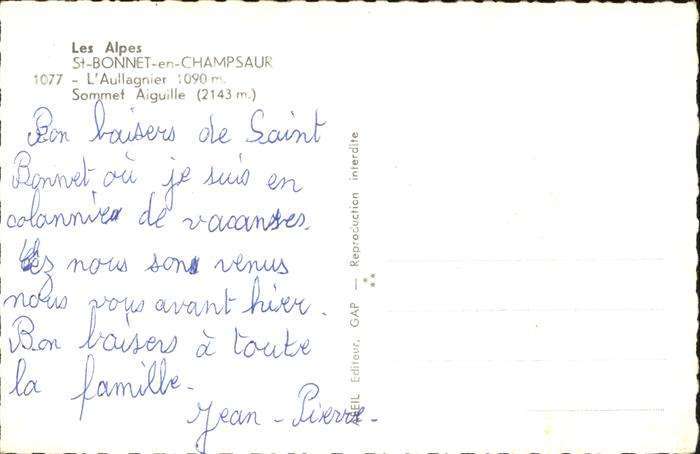 Les Alpes
St-BONNET-en-CHAMPSAUR
1077 - L'Aullagnier 1090 m.
Sommet Aiguille (2143 m.)
Bon baisers de Saint
Bonnet où je suis en
colonnie de vacanses.
nous sons venus
nous vous avant hier.
Bon baisers à toute
la famille.
Jean - Pierre -
EIL Editeur, GAP — Reproduction interdite